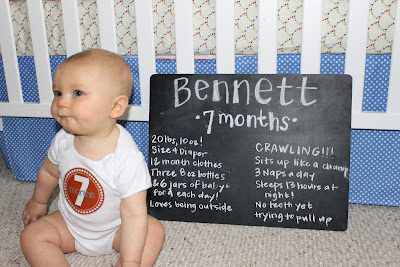 Bennett
· 7 months ·
20 lbs, 10 oz!
Size 4 Diaper
12 month clothes
Three 8oz bottles
& 6 jars of baby
food each day!
Loves being outside
CRAWLING!!!
Sits up like a champ
3 Naps a day
Sleeps 13 hours at
night!
No teeth yet
trying to pull up
7
months